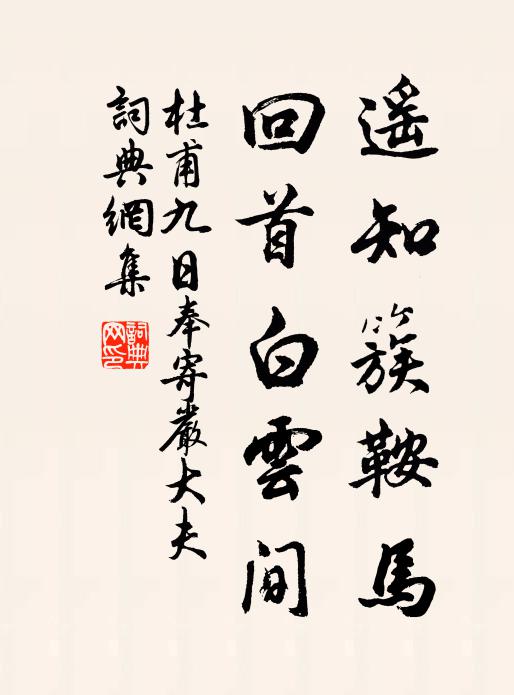 遥知簇鞍馬
回首白雲間
杜甫九日奉寄嚴大夫
詞典網集
詞典網印